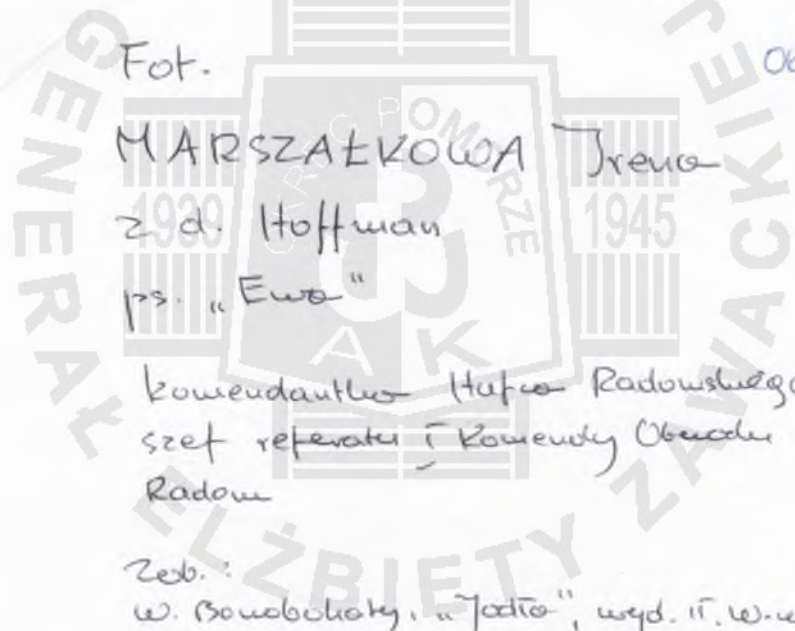 Fot.
Ob
MARSZAŁKOWA Irena
z d. Hoffman
ps. „Ewa"
komendantka Hufca Radomskiego
szef referatu I Komendy Obwodu
Radom
Zob.:
W. Borzobohaty, „Jodła", wyd. II, W-w
GENERAŁ ELŻBIETY ZAWACKIEJ
1939 1945
POMORZE
AK